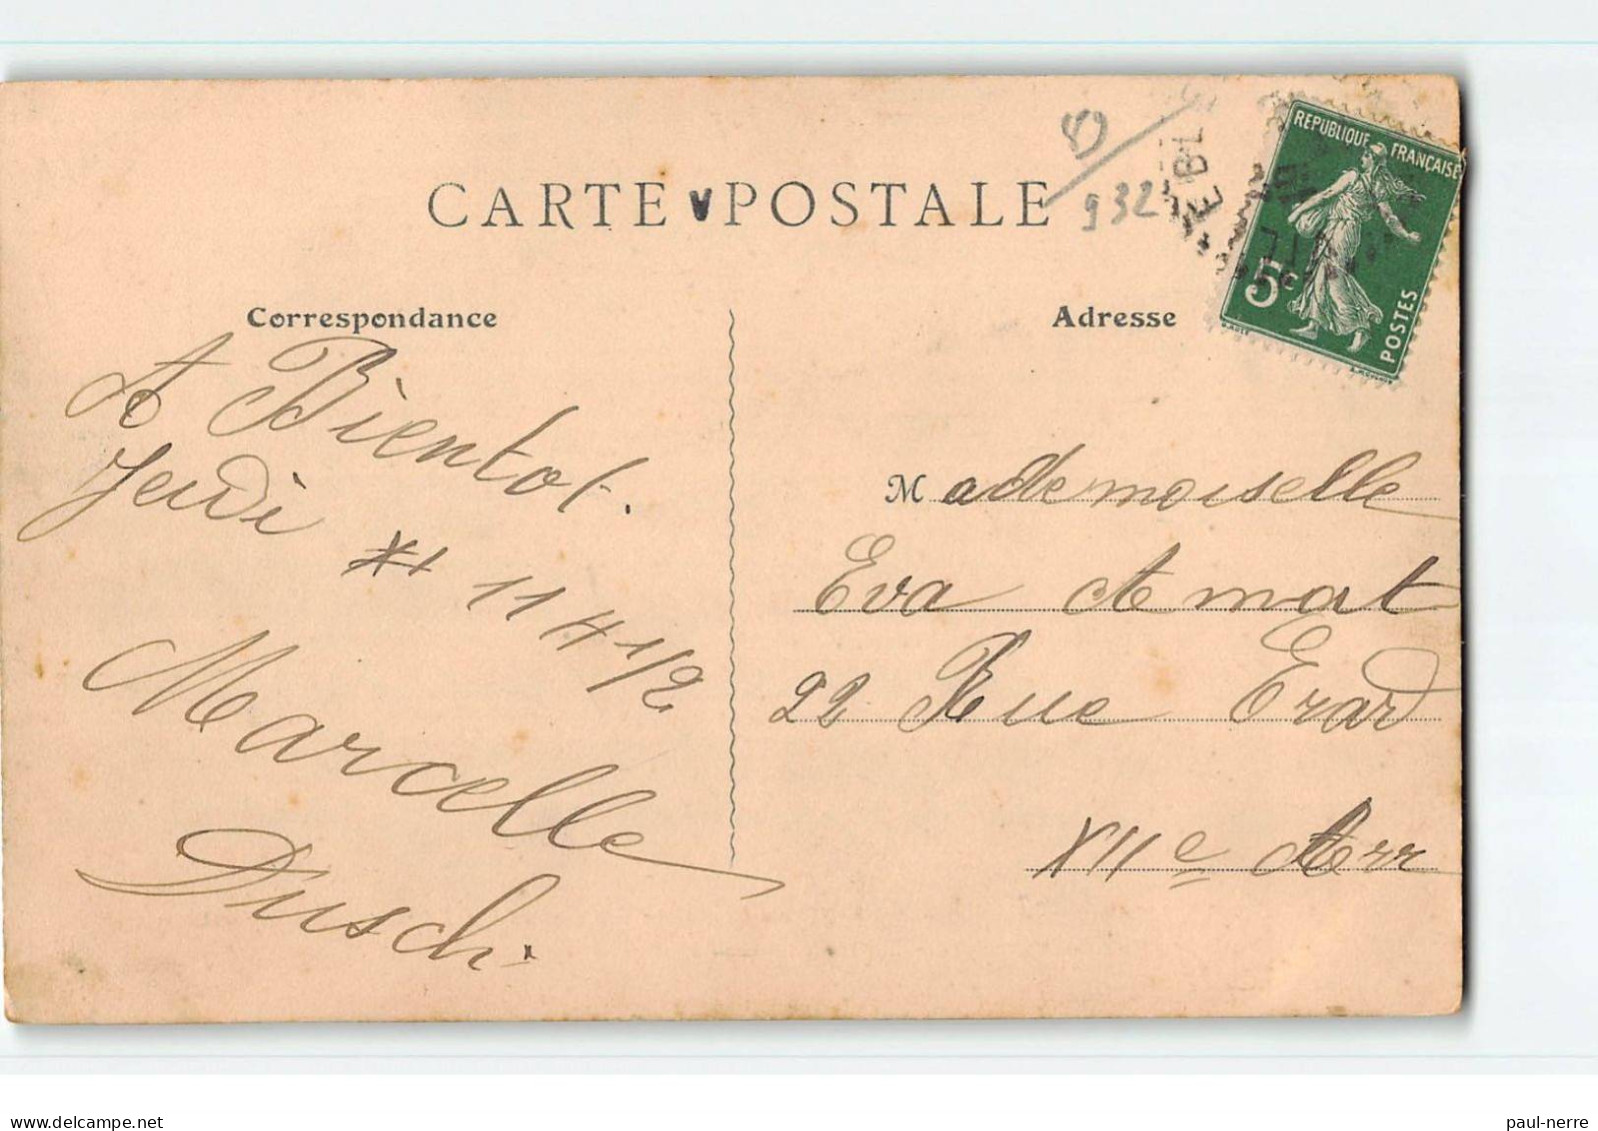 CARTE POSTALE
932
REPUBLIQUE FRANÇAISE
5c
POSTES
Correspondance
Adresse
A Bientot.
Jeudi 11 H 1/2
Marcelle
Dusch.
Mademoiselle
Eva Amat
22 Rue Erard
XIIe Arr
delcampe.net
paul-nerre